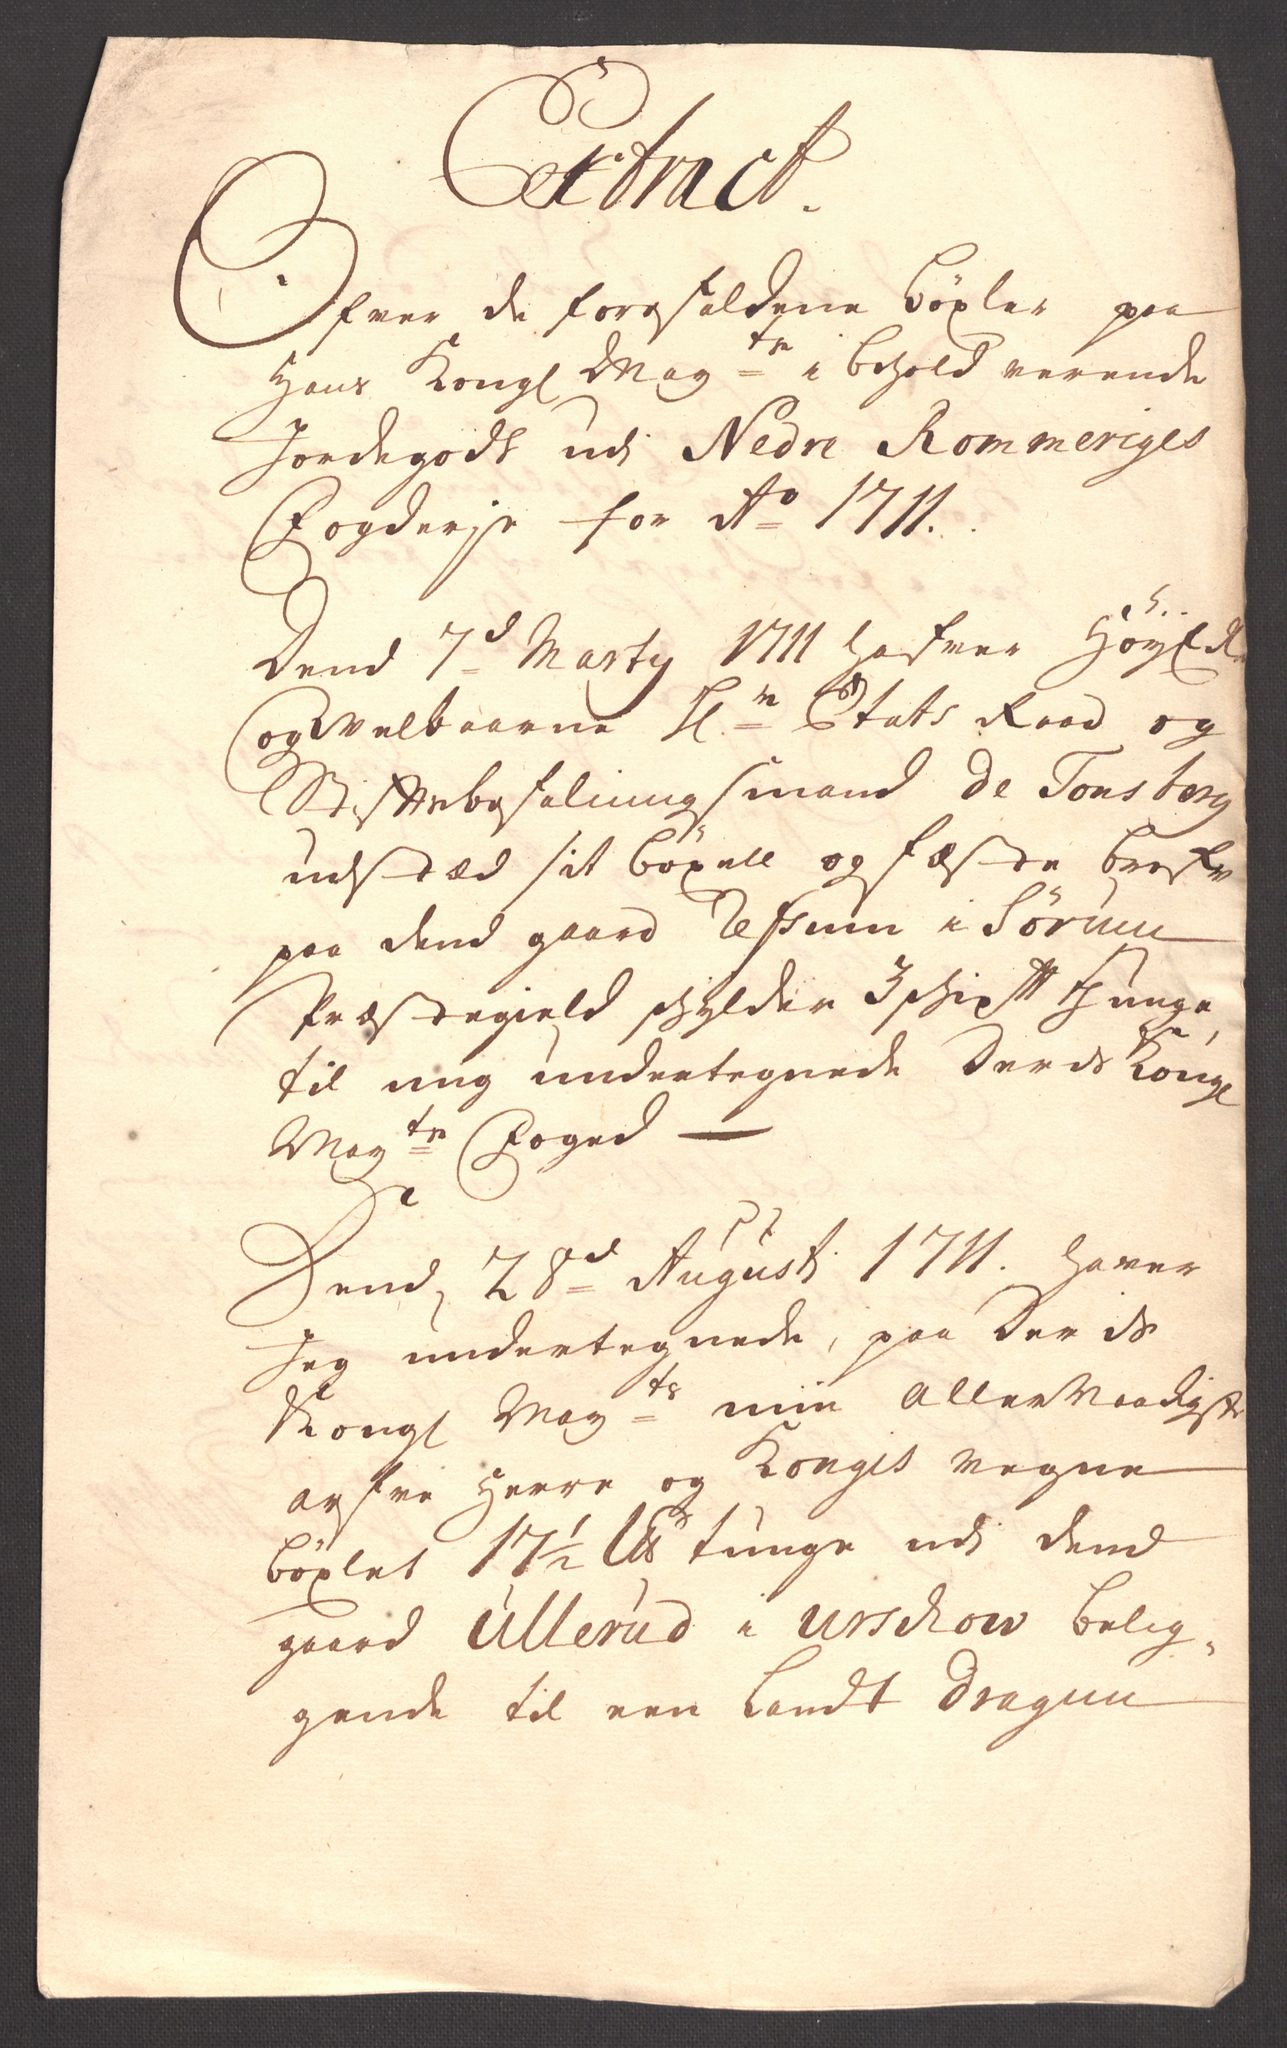 Extract.
Ofver de forefaldene böxler paa
Hans Kongl May^ts i behold verende
Jordegods udj Nedre Rommeriges
Fogderje for A^o 1711.
Dend 7^d Marty 1711 hafver Höyædle
og Velbaarne H^r Etats Raad og
Stiftbefalingsmand de Tonsberg
udstæd sit böxell og fæste brefv
paa dend gaard Refsum i Sörum
Præstegield skylder 3 skip℔ tunge,
til mig undertegnede Deris Kongl
May^ts Foged —
Dend 28^d Augusti 1711. haver
Jeg undertegnede, paa Deris
Kongl May^ts min Allernaadigste
arfve Herre og Konges vegne
böxlet 17½ L℔ tunge udj dend
gaard Ullerud i Urschow belig-
gende til een Landt Dragun